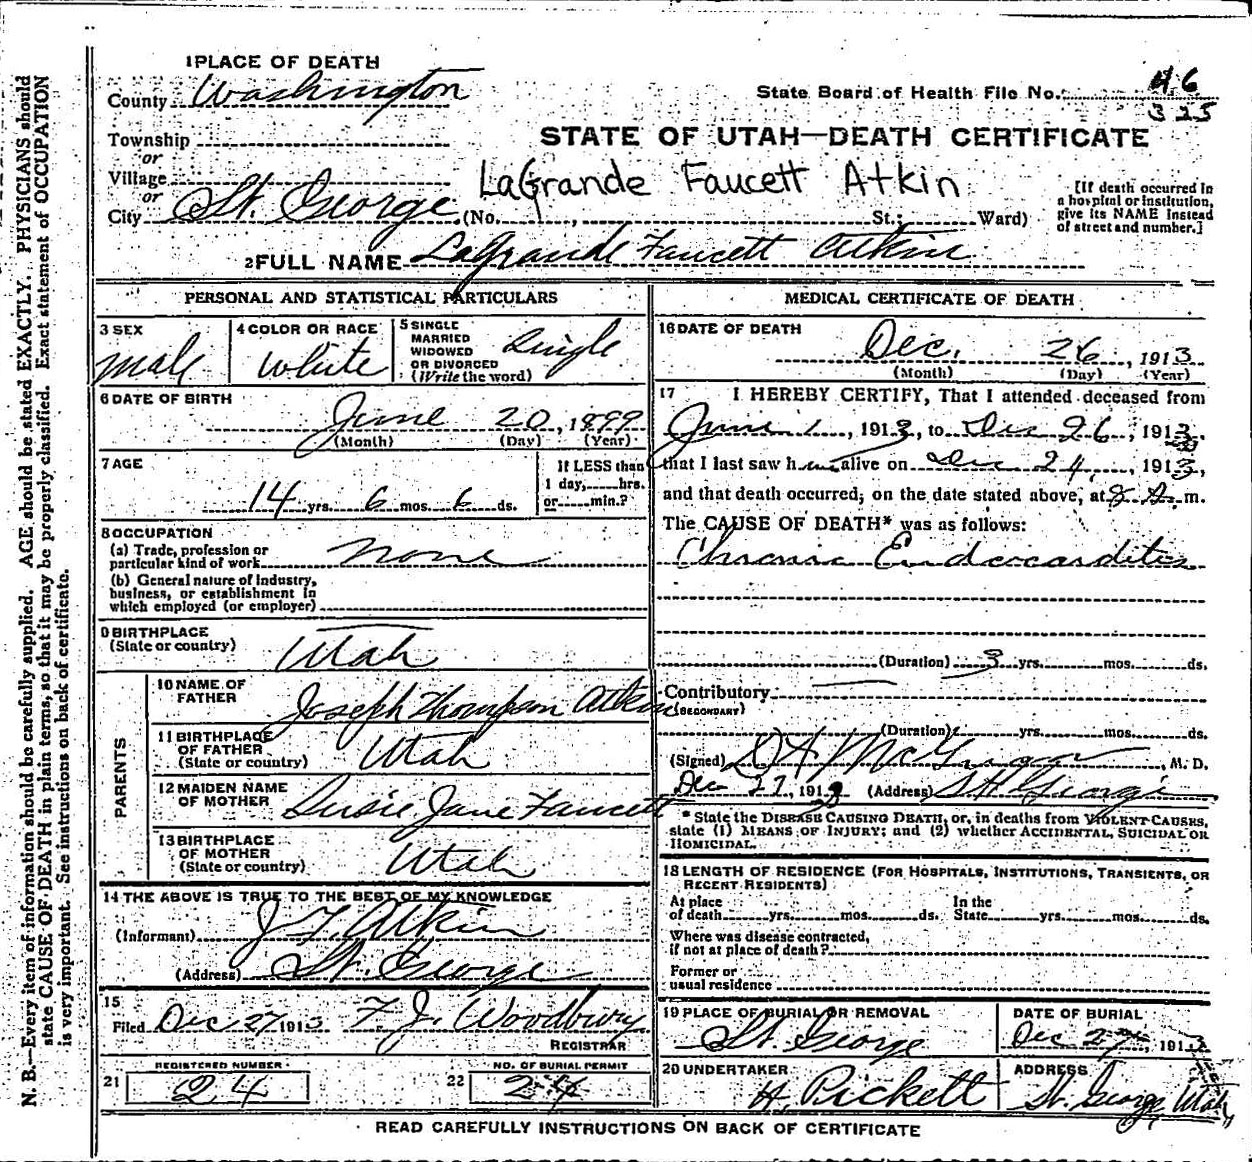 N. B.—Every item of information should be carefully supplied. AGE should be stated EXACTLY. PHYSICIANS should
state CAUSE OF DEATH in plain terms, so that it may be properly classified. Exact statement of OCCUPATION
is very important. See instructions on back of certificate.
1 PLACE OF DEATH
County Washington
State Board of Health File No. 46
325
Township
or
STATE OF UTAH—DEATH CERTIFICATE
Village
or
LaGrande Faucett Atkin
City St. George (No. , St.; Ward)
[If death occurred in
a hospital or institution,
give its NAME instead
of street and number.]
2 FULL NAME LaGrande Faucett Atkin
PERSONAL AND STATISTICAL PARTICULARS
3 SEX
male
4 COLOR OR RACE
White
5 SINGLE
MARRIED
WIDOWED
OR DIVORCED
(Write the word)
Single
6 DATE OF BIRTH
June 20, 1899
(Month) (Day) (Year)
7 AGE
14 yrs. 6 mos. 6 ds.
If LESS than
1 day, hrs.
or min.?
8 OCCUPATION
(a) Trade, profession or
particular kind of work none
(b) General nature of industry,
business, or establishment in
which employed (or employer)
9 BIRTHPLACE
(State or country) Utah
PARENTS
10 NAME OF
FATHER Joseph Thompson Atkin
11 BIRTHPLACE
OF FATHER
(State or country) Utah
12 MAIDEN NAME
OF MOTHER Susie Jane Faucett
13 BIRTHPLACE
OF MOTHER
(State or country) Utah
14 THE ABOVE IS TRUE TO THE BEST OF MY KNOWLEDGE
(Informant) J T Atkin
(Address) St. George
15
Filed Dec 27 1913 F. J. Woodbury
REGISTRAR
REGISTERED NUMBER
21 24
NO. OF BURIAL PERMIT
22 24
MEDICAL CERTIFICATE OF DEATH
16 DATE OF DEATH
Dec. 26, 1913
(Month) (Day) (Year)
17 I HEREBY CERTIFY, That I attended deceased from
June 1, 1913, to Dec 26, 1913,
that I last saw him alive on Dec 24, 1913,
and that death occurred, on the date stated above, at 8 A. m.
The CAUSE OF DEATH* was as follows:
Chronic Endocarditis
(Duration) 3 yrs. mos. ds.
Contributory
(SECONDARY)
(Duration) yrs. mos. ds.
(Signed) D A McGregor, M. D.
Dec 27, 1913 (Address) St George
* State the DISEASE CAUSING DEATH, or, in deaths from VIOLENT CAUSES,
state (1) MEANS OF INJURY; and (2) whether ACCIDENTAL, SUICIDAL OR
HOMICIDAL.
18 LENGTH OF RESIDENCE (FOR HOSPITALS, INSTITUTIONS, TRANSIENTS, OR
RECENT RESIDENTS)
At place In the
of death yrs. mos. ds. State yrs. mos. ds.
Where was disease contracted,
if not at place of death?
Former or
usual residence
19 PLACE OF BURIAL OR REMOVAL
St. George
DATE OF BURIAL
Dec 27, 1913
20 UNDERTAKER
H. Pickett
ADDRESS
St. George, Utah
READ CAREFULLY INSTRUCTIONS ON BACK OF CERTIFICATE